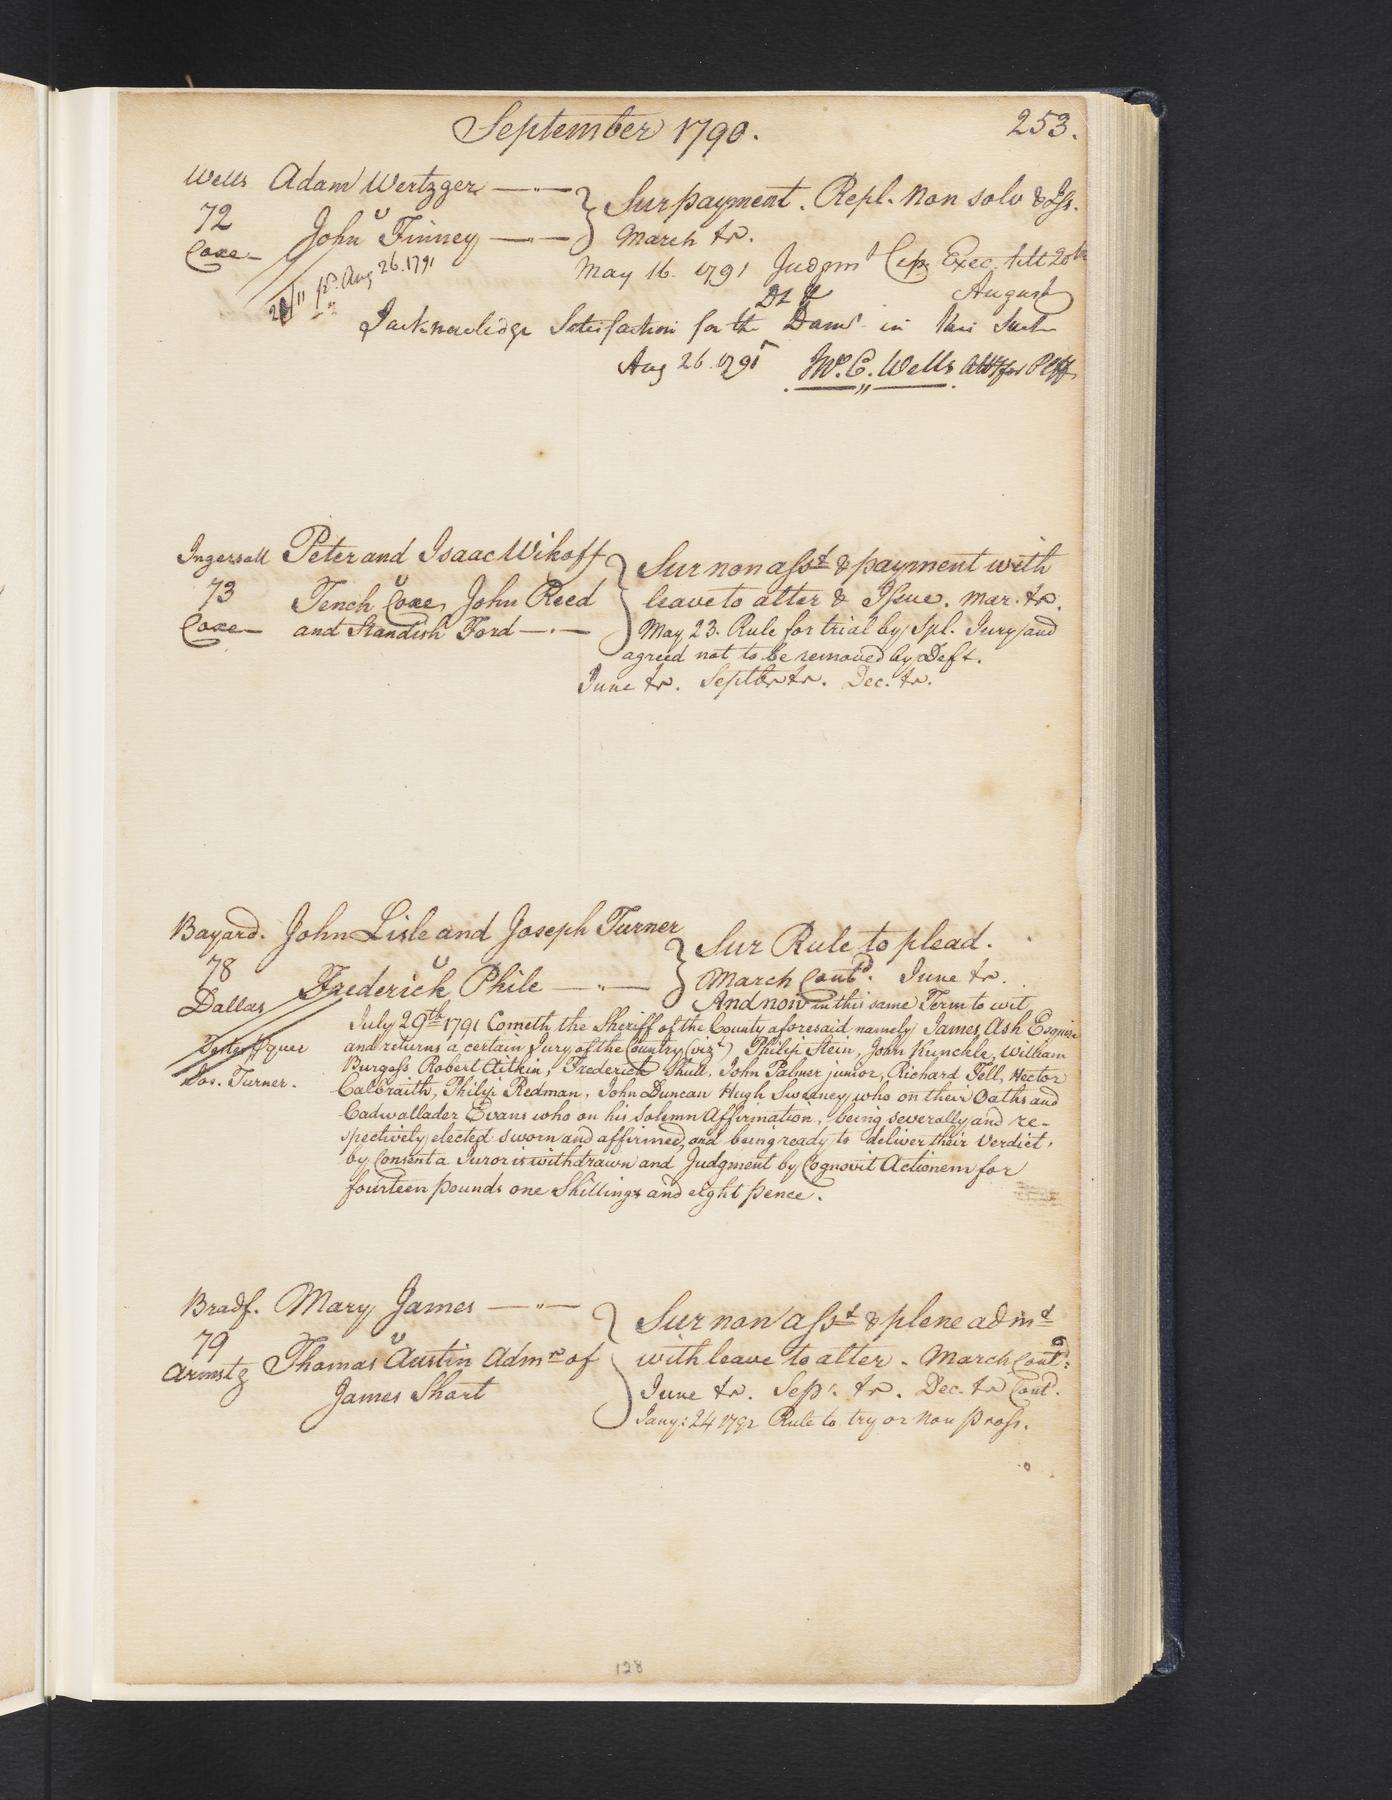 September 1790.
253.
Wells Adam Wertzger
72 v Sur payment. Repl. non solv & Iss.
Coxe John Finney March tr.
20/11 pd. Aug 26. 1791
May 16. 1791 Judgmt Exec. till 20th
August
I acknowledge Satisfaction for the Debt & Dams in this Suit
Aug 26. 1791 Wm. C. Wells Atty for Plff
Ingersoll Peter and Isaac Wikoff Sur non asst & payment with
73 v
Coxe Tench Coxe, John Reed leave to alter & Issue. Mar. tr.
and Standish Ford May 23. Rule for trial by Spl. Jury and
agreed not to be removed by Deft.
June tr. Septbr tr. Dec. tr.
Bayard. John Lisle and Joseph Turner Sur Rule to plead.
78 v
Dallas Frederick Phile March Contd. June tr.
And now in this same Term to wit
July 29th 1791 Cometh the Sheriff of the County aforesaid namely James Ash Esquire
and returns a certain Jury of the Country (vizt) Philip Stein, John Kunckle, William
Burgess Robert Aitkin, Frederick Shull, John Palmer junior, Richard Tell, Hector
Jos. Turner.
Calbraith, Philip Redman, John Duncan Hugh Sweeney who on their Oaths and
Cadwallader Evans who on his Solemn Affirmation, being severally and re-
spectively elected sworn and affirmed, and being ready to deliver their Verdict,
by Consent a Juror is withdrawn and Judgment by Cognovit Actionem for
fourteen pounds one Shillings and eight pence.
Bradf. Mary James Sur non asst & plene admd
79 v
Armstg Thomas Austin Admr of with leave to alter. March Contd:
James Short June tr. Sepr. tr. Dec. tr Contd.
Jany: 24 1792 Rule to try or non pross.
128